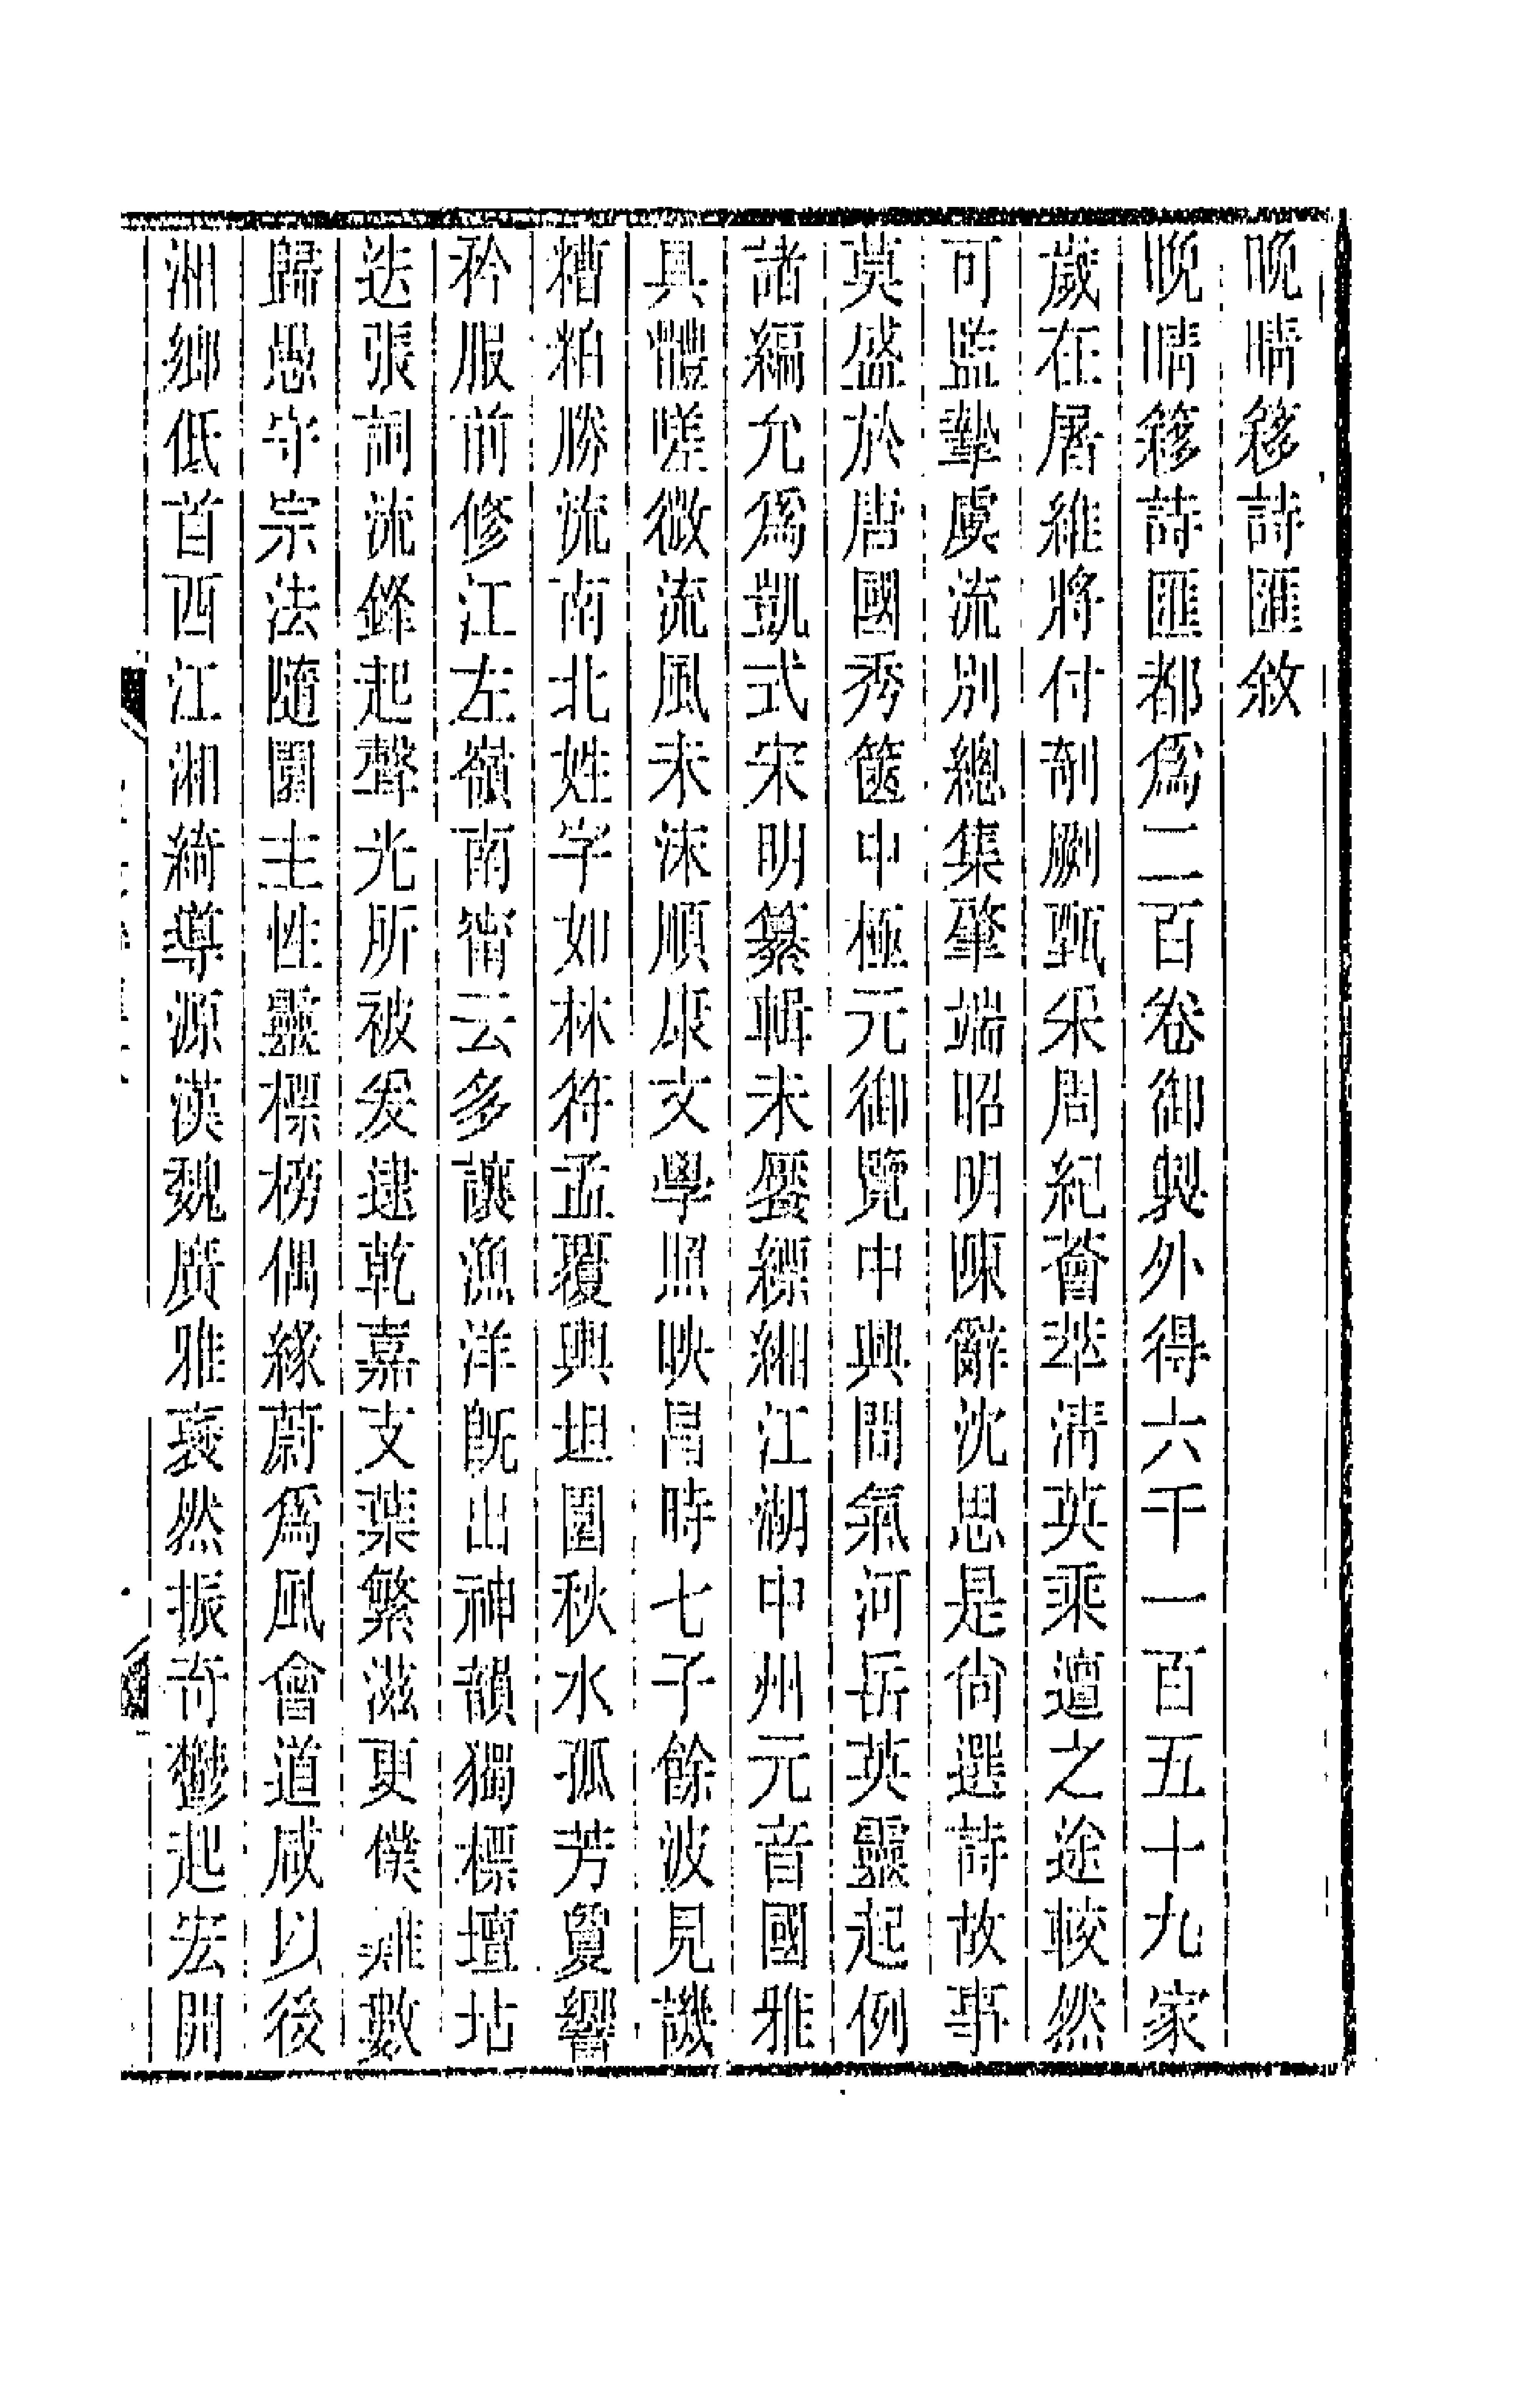 晩晴簃詩匯敘
晩晴簃詩匯都爲二百卷御製外得六千一百五十九家
歲在屠維將付剞劂甄采周紀薈萃淸英乘邅之途較然
可監摯虞流別總集肇端昭明陳辭沈思是尙選詩故事
莫盛於唐國秀篋中極元御覽中興閒氣河岳英靈起例
諸編允爲凱式宋明纂輯未饜縹緗江湖中州元音國雅
具體嗟微流風未沫順康文學照映昌時七子餘波見譏
糟粕勝流南北姓字如林符孟覆輿坦園秋水孤芳夐響
矜服前修江左嶺南甯云多讓漁洋旣出神韻獨標壇坫
迭張詞流鋒起聲光所被爰逮乾嘉支葉繁滋更僕難數
歸愚守宗法隨園主性靈標榜偶緣蔚爲風會道咸以後
洲鄉低首西江湘綺導源漢魏廣雅褎然振奇鬱起宏開